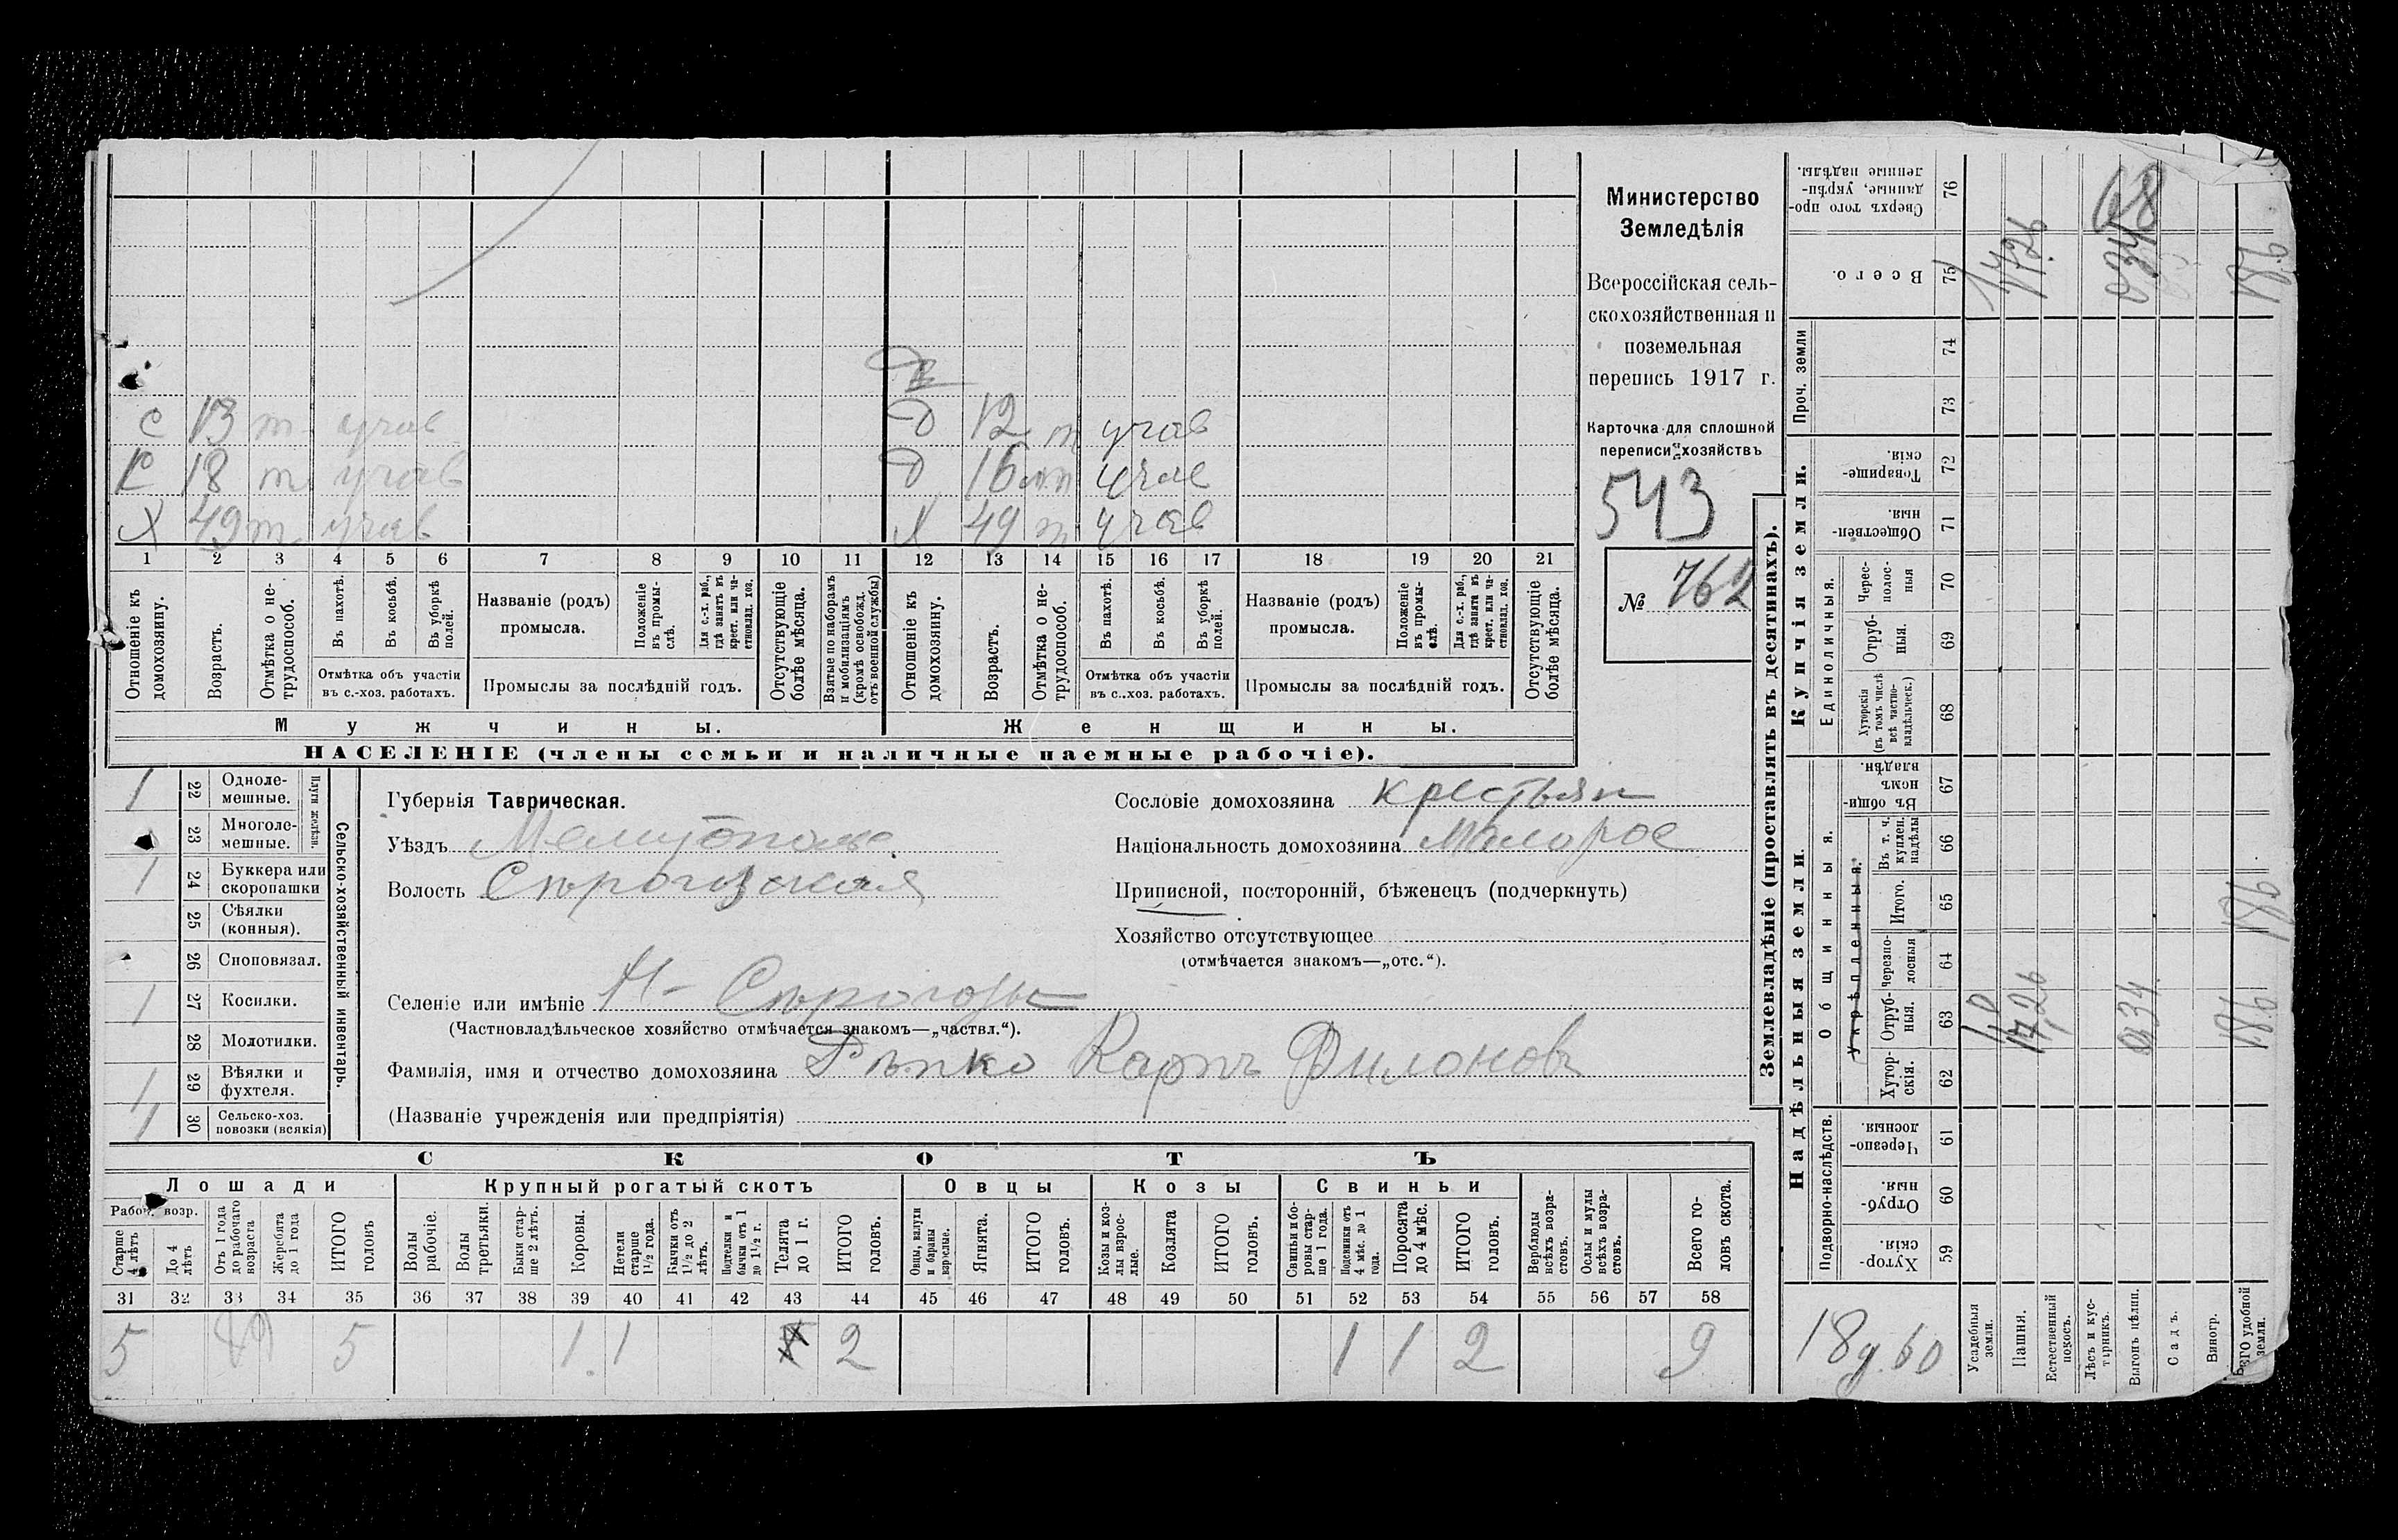 Министерство
Земледѣлія
Всероссійская сель-
скохозяйственная и
поземельная
перепись 1917 г.
Карточка для сплошной
переписи хозяйствъ
543
№ 762
с 13 т учав
с 18 т учав
Х 49 т учав
д 12 т учав
д 16 т учав
Х 49 т учав
1 2 3 4 5 6 7 8 9 10 11 12 13 14 15 16 17 18 19 20 21
Отношеніе къ домохозяину.
Возрастъ.
Отмѣтка о не-трудоспособ.
Въ пахотѣ.
Въ косьбѣ.
Въ уборкѣ полей.
Отмѣтка объ участіи въ с.-хоз. работахъ.
Названіе (родъ) промысла.
Положеніе въ промы-слѣ.
Для с.-х. раб., гдѣ занятъ въ крест. или ча-стновлад. хоз.
Промыслы за послѣдній годъ.
Отсутствующіе болѣе мѣсяца.
Взятые по наборамъ и мобилизаціямъ (кромѣ освобожд. отъ военной службы)
Отношеніе къ домохозяину.
Возрастъ.
Отмѣтка о не-трудоспособ.
Въ пахотѣ.
Въ косьбѣ.
Въ уборкѣ полей.
Отмѣтка объ участіи въ с.-хоз. работахъ.
Названіе (родъ) промысла.
Положеніе въ промы-слѣ.
Для с.-х. раб., гдѣ занята въ крест. или ча-стновлад. хоз.
Промыслы за послѣдній годъ.
Отсутствующіе болѣе мѣсяца.
Мужчины.
Женщины.
НАСЕЛЕНІЕ (члены семьи и наличные наемные рабочіе).
Сельско-хозяйственный инвентарь.
Плуги желѣзн.
1 22 Одноле-мешные.
23 Многоле-мешные.
1 24 Буккера или скоропашки
25 Сѣялки (конныя).
26 Сноповязал.
1 27 Косилки.
28 Молотилки.
1 29 Вѣялки и фухтеля.
1 30 Сельско-хоз. повозки (всякія)
Губернія Таврическая.
Уѣздъ Мелитополь
Волость Сѣрогозская
Сословіе домохозяина крестьян
Національность домохозяина Малорос
Приписной, посторонній, бѣженецъ (подчеркнуть)
Хозяйство отсутствующее
(отмѣчается знакомъ—„отс.“).
Селеніе или имѣніе Н- Сѣрогозы
(Частновладѣльческое хозяйство отмѣчается знакомъ—„частвл.“).
Фамилія, имя и отчество домохозяина Рѣпко Карпъ Филоновъ
(Названіе учрежденія или предпріятія)
СКОТЪ
Лошади
Крупный рогатый скотъ
Овцы
Козы
Свиньи
Рабоч. возр.
Старше 4 лѣтъ
До 4 лѣтъ
Отъ 1 года до рабочаго возраста
Жеребята до 1 года
ИТОГО головъ
Волы рабочіе.
Волы третьяки.
Быки стар-ше 2 лѣтъ.
Коровы.
Нетели старше 1½ года.
Бычки отъ 1½ до 2 лѣтъ.
Подтелки и бычки отъ 1 до 1½ г.
Телята до 1 г.
ИТОГО головъ.
Овцы, валухи и бараны взрослые.
Ягнята.
ИТОГО головъ.
Козы и коз-лы взрос-лые.
Козлята
ИТОГО головъ.
Свиньи и бо-ровы стар-ше 1 года.
Подсвинки отъ 4 мѣс. до 1 года.
Поросята до 4 мѣс.
ИТОГО головъ.
Верблюды всѣхъ возра-стовъ.
Ослы и мулы всѣхъ возра-стовъ.
Всего го-ловъ скота.
31 32 33 34 35 36 37 38 39 40 41 42 43 44 45 46 47 48 49 50 51 52 53 54 55 56 57 58
5 5 1 1 2 1 1 2 9
Землевладѣніе (проставлять въ десятинахъ).
Надѣльныя земли
Купчія земли.
Проч. земли
Подворно-наслѣдств.
Общинныя.
Укрѣпленныя.
Единоличныя.
Сверхъ того про-данные, укрѣп-ленные надѣлы. 76
Всего. 75
74
73
Товарище-скія. 72
Обществен-ныя. 71
Черес-полос-ныя 70
Отруб-ныя. 69
Хуторскія (въ томъ числѣ всѣ частно-владѣльческ.) 68
Въ общи-номъ владѣн. 67
Въ т. ч. куплен. надѣлы 66
Итого. 65
Черезпо-лосныя 64
Отруб-ныя. 63
Хутор-скія. 62
Черезпо-лосныя 61
Отруб-ныя. 60
Хутор-скія. 59
Усадебныя земли.
Пашня.
Естественный покосъ.
Лѣсъ и кус-тарникъ.
Выгонъ цѣлин.
Садъ.
Виногр.
ВСЕГО удобной земли.
68
17,26
0,34
18,6
18 д. 60